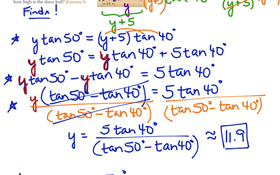 how high is the dinner ball? (Example 3)
y
(y+5)
y+5
Find x!
* y tan 50° = (y+5) tan 40°
y tan 50° = y tan 40° + 5 tan 40°
* y tan 50° - y tan 40° = 5 tan 40°
* y (tan 50° - tan 40°) = 5 tan 40°
(tan 50° - tan 40°) (tan 50° - tan 40°)
y = 5 tan 40° / (tan 50° - tan 40°) ≈ 11.9